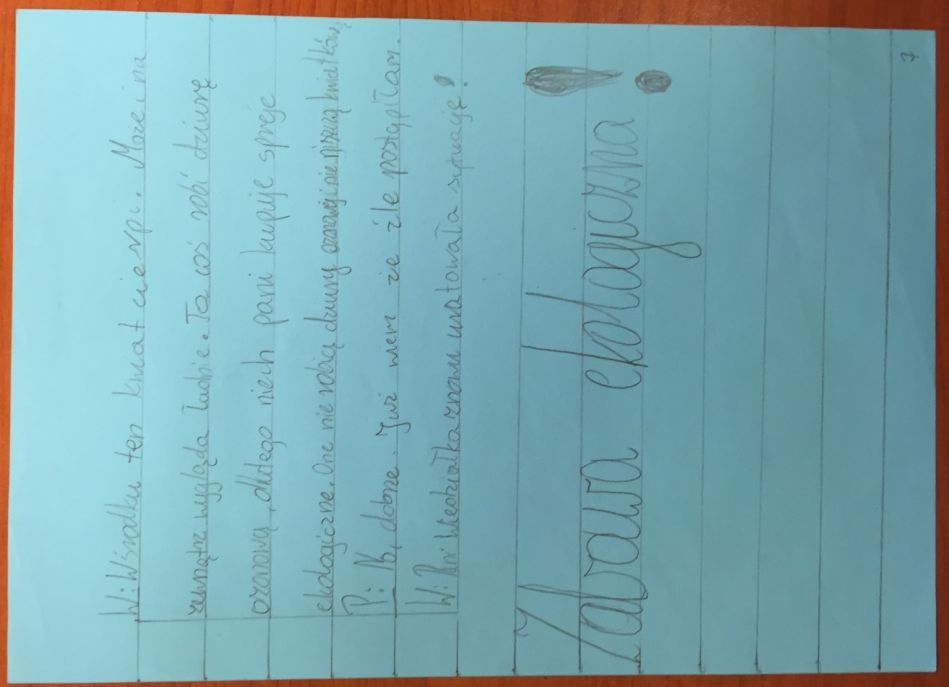 W: W środku ten kwiat cierpi. Może i na
zewnątrz wygląda ładnie. Ta coś robi dziurę
ozonową, dlatego niech pani kupuje spreje
ekologiczne. One nie robią dziury ozonowej i nie niszczą kwiatków,
P: No, dobrze. Już wiem że źle postąpiłam.
W: Pani Wiedziałka znowu uratowała sytuację!
Zabawa ekologiczna!
7